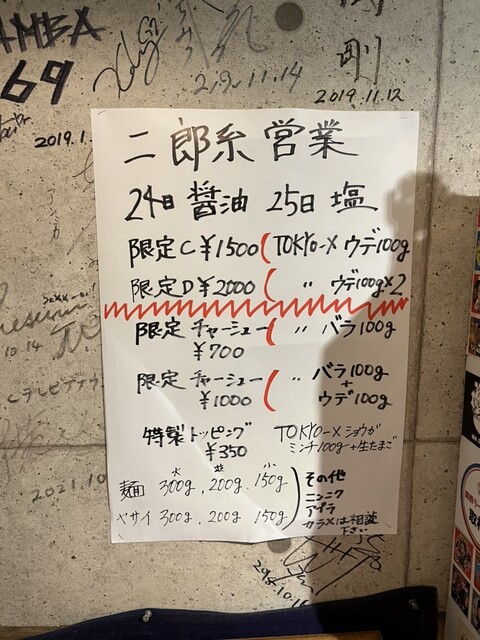 MBA
69
2019.11.14
剛
2019.11.12
2019.1
二郎系営業
24日 醤油 25日 塩
限定C ¥1500 ( TOKYO-X ウデ100g
限定D ¥2000 ( 〃 ウデ100g×2
限定 チャーシュー ( 〃 バラ100g
¥700
限定 チャーシュー ( 〃 バラ100g
+
¥1000 ウデ100g
特製トッピング TOKYO-X ショウガ
¥350 ミンチ100g+生たまご
大 並 小
麺 300g. 200g. 150g
ヤサイ 300g. 200g 150g
その他
ニンニク
アブラ
カラメは相談
下さい
10.14
2021.10